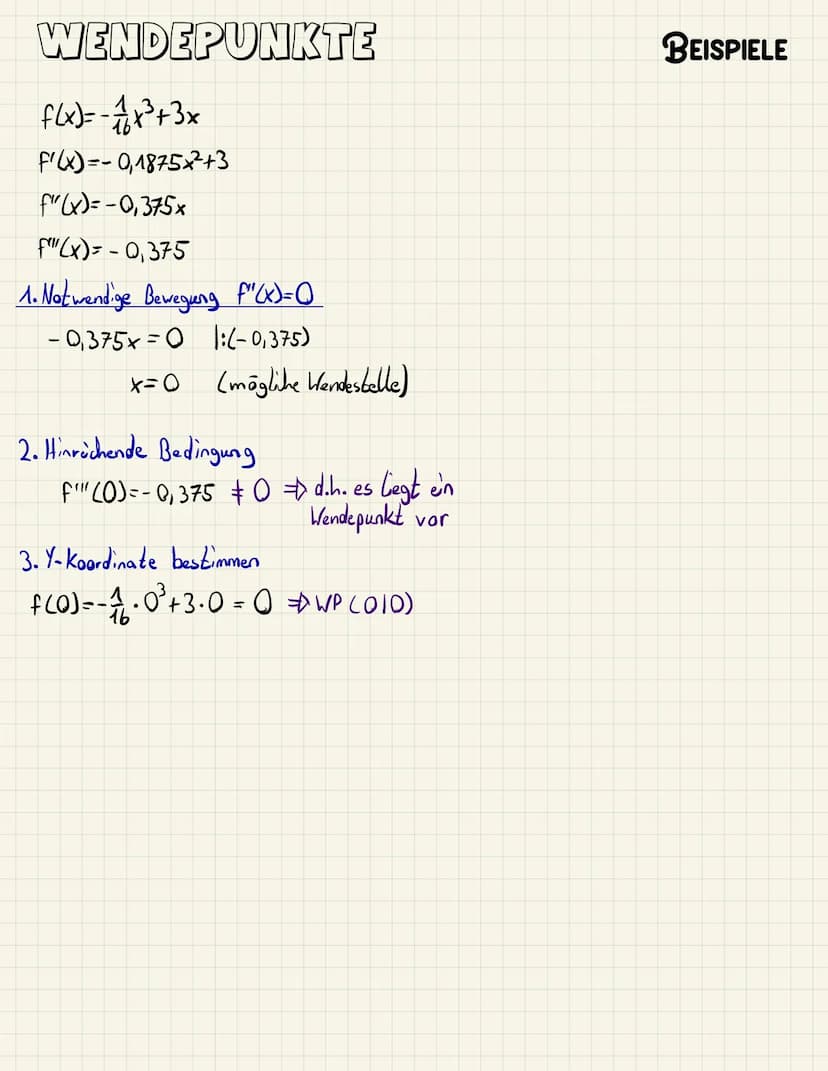 WENDEPUNKTE
BEISPIELE
f(x)=-1/16x³+3x
f'(x)=-0,1875x²+3
f''(x)=-0,375x
f'''(x)=-0,375
1. Notwendige Bewegung f''(x)=0
-0,375x=0 |:(-0,375)
x=0 (mögliche Wendestelle)
2. Hinreichende Bedingung
f'''(0)=-0,375 ≠ 0 ⇒ d.h. es liegt ein
Wendepunkt vor
3. Y-Koordinate bestimmen
f(0)=-1/16·0³+3·0=0 ⇒ WP(0|0)